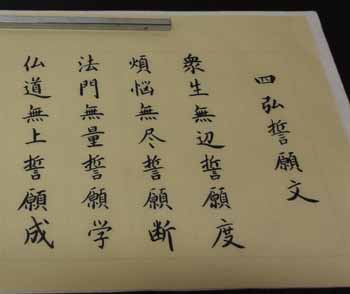 四弘誓願文
衆生無辺誓願度
煩悩無尽誓願断
法門無量誓願学
仏道無上誓願成